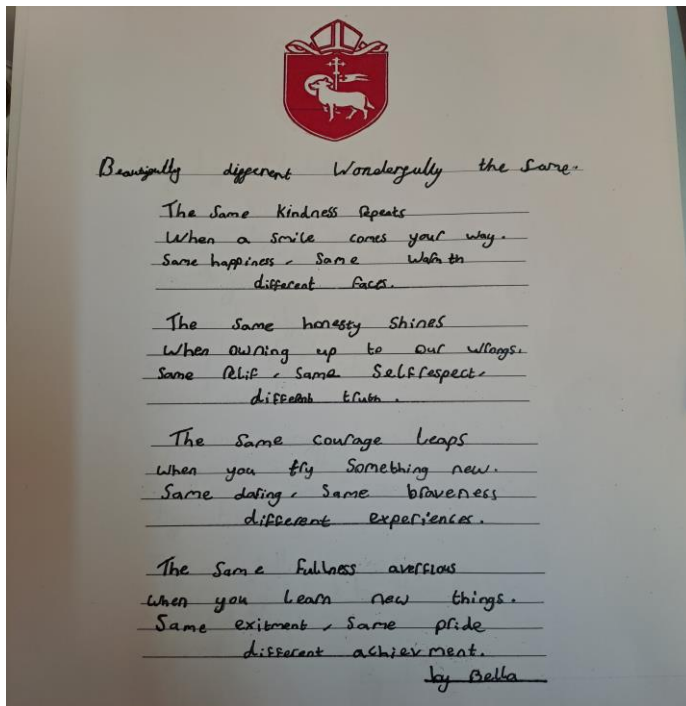 Beautifully different Wonderfully the Same.
The Same Kindness Repeats
When a smile comes your way.
Same happiness, Same Warmth
different faces.
The Same honesty Shines
When owning up to our wrongs.
Same Relif, Same Selfrespect,
different truth.
The Same courage Leaps
When you try Something new.
Same daring, Same braveness
different experiences.
The Same Fullness averflows
When you Learn new things.
Same exitment, Same pride
different achievment.
by Bella